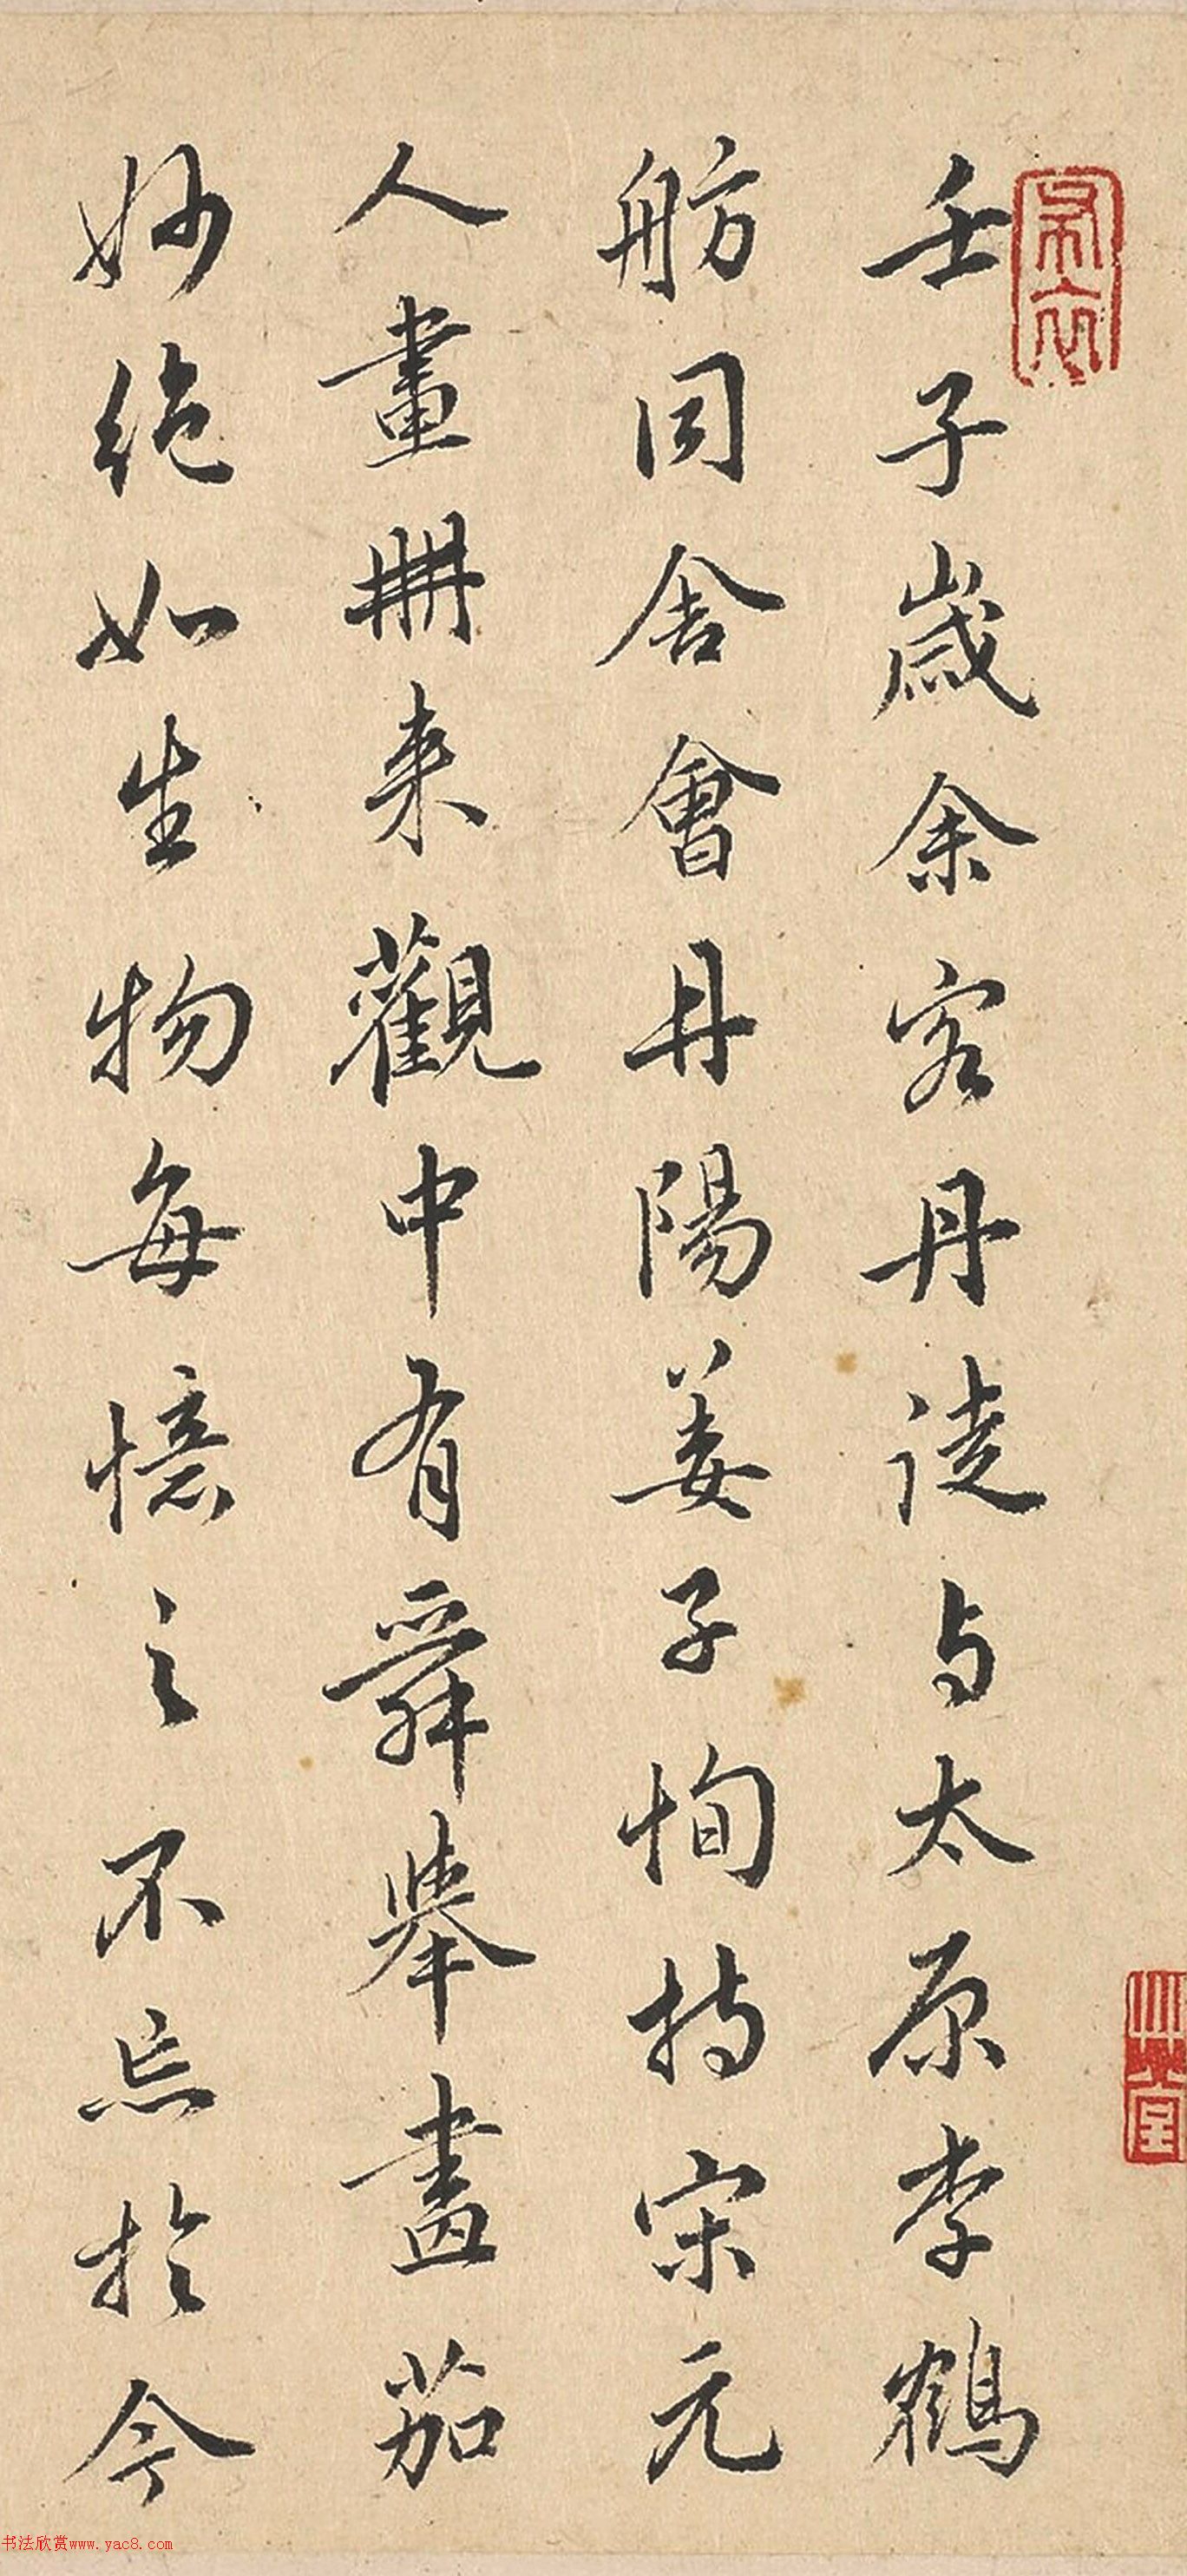 壬子歲余客丹徒与太原李鶴
舫同舍會丹陽姜子恂持宋元
人畫冊来觀中有舜舉畫茄
妙絶如生物每憶之不忘於今
草堂
书法欣赏www.yac8.com